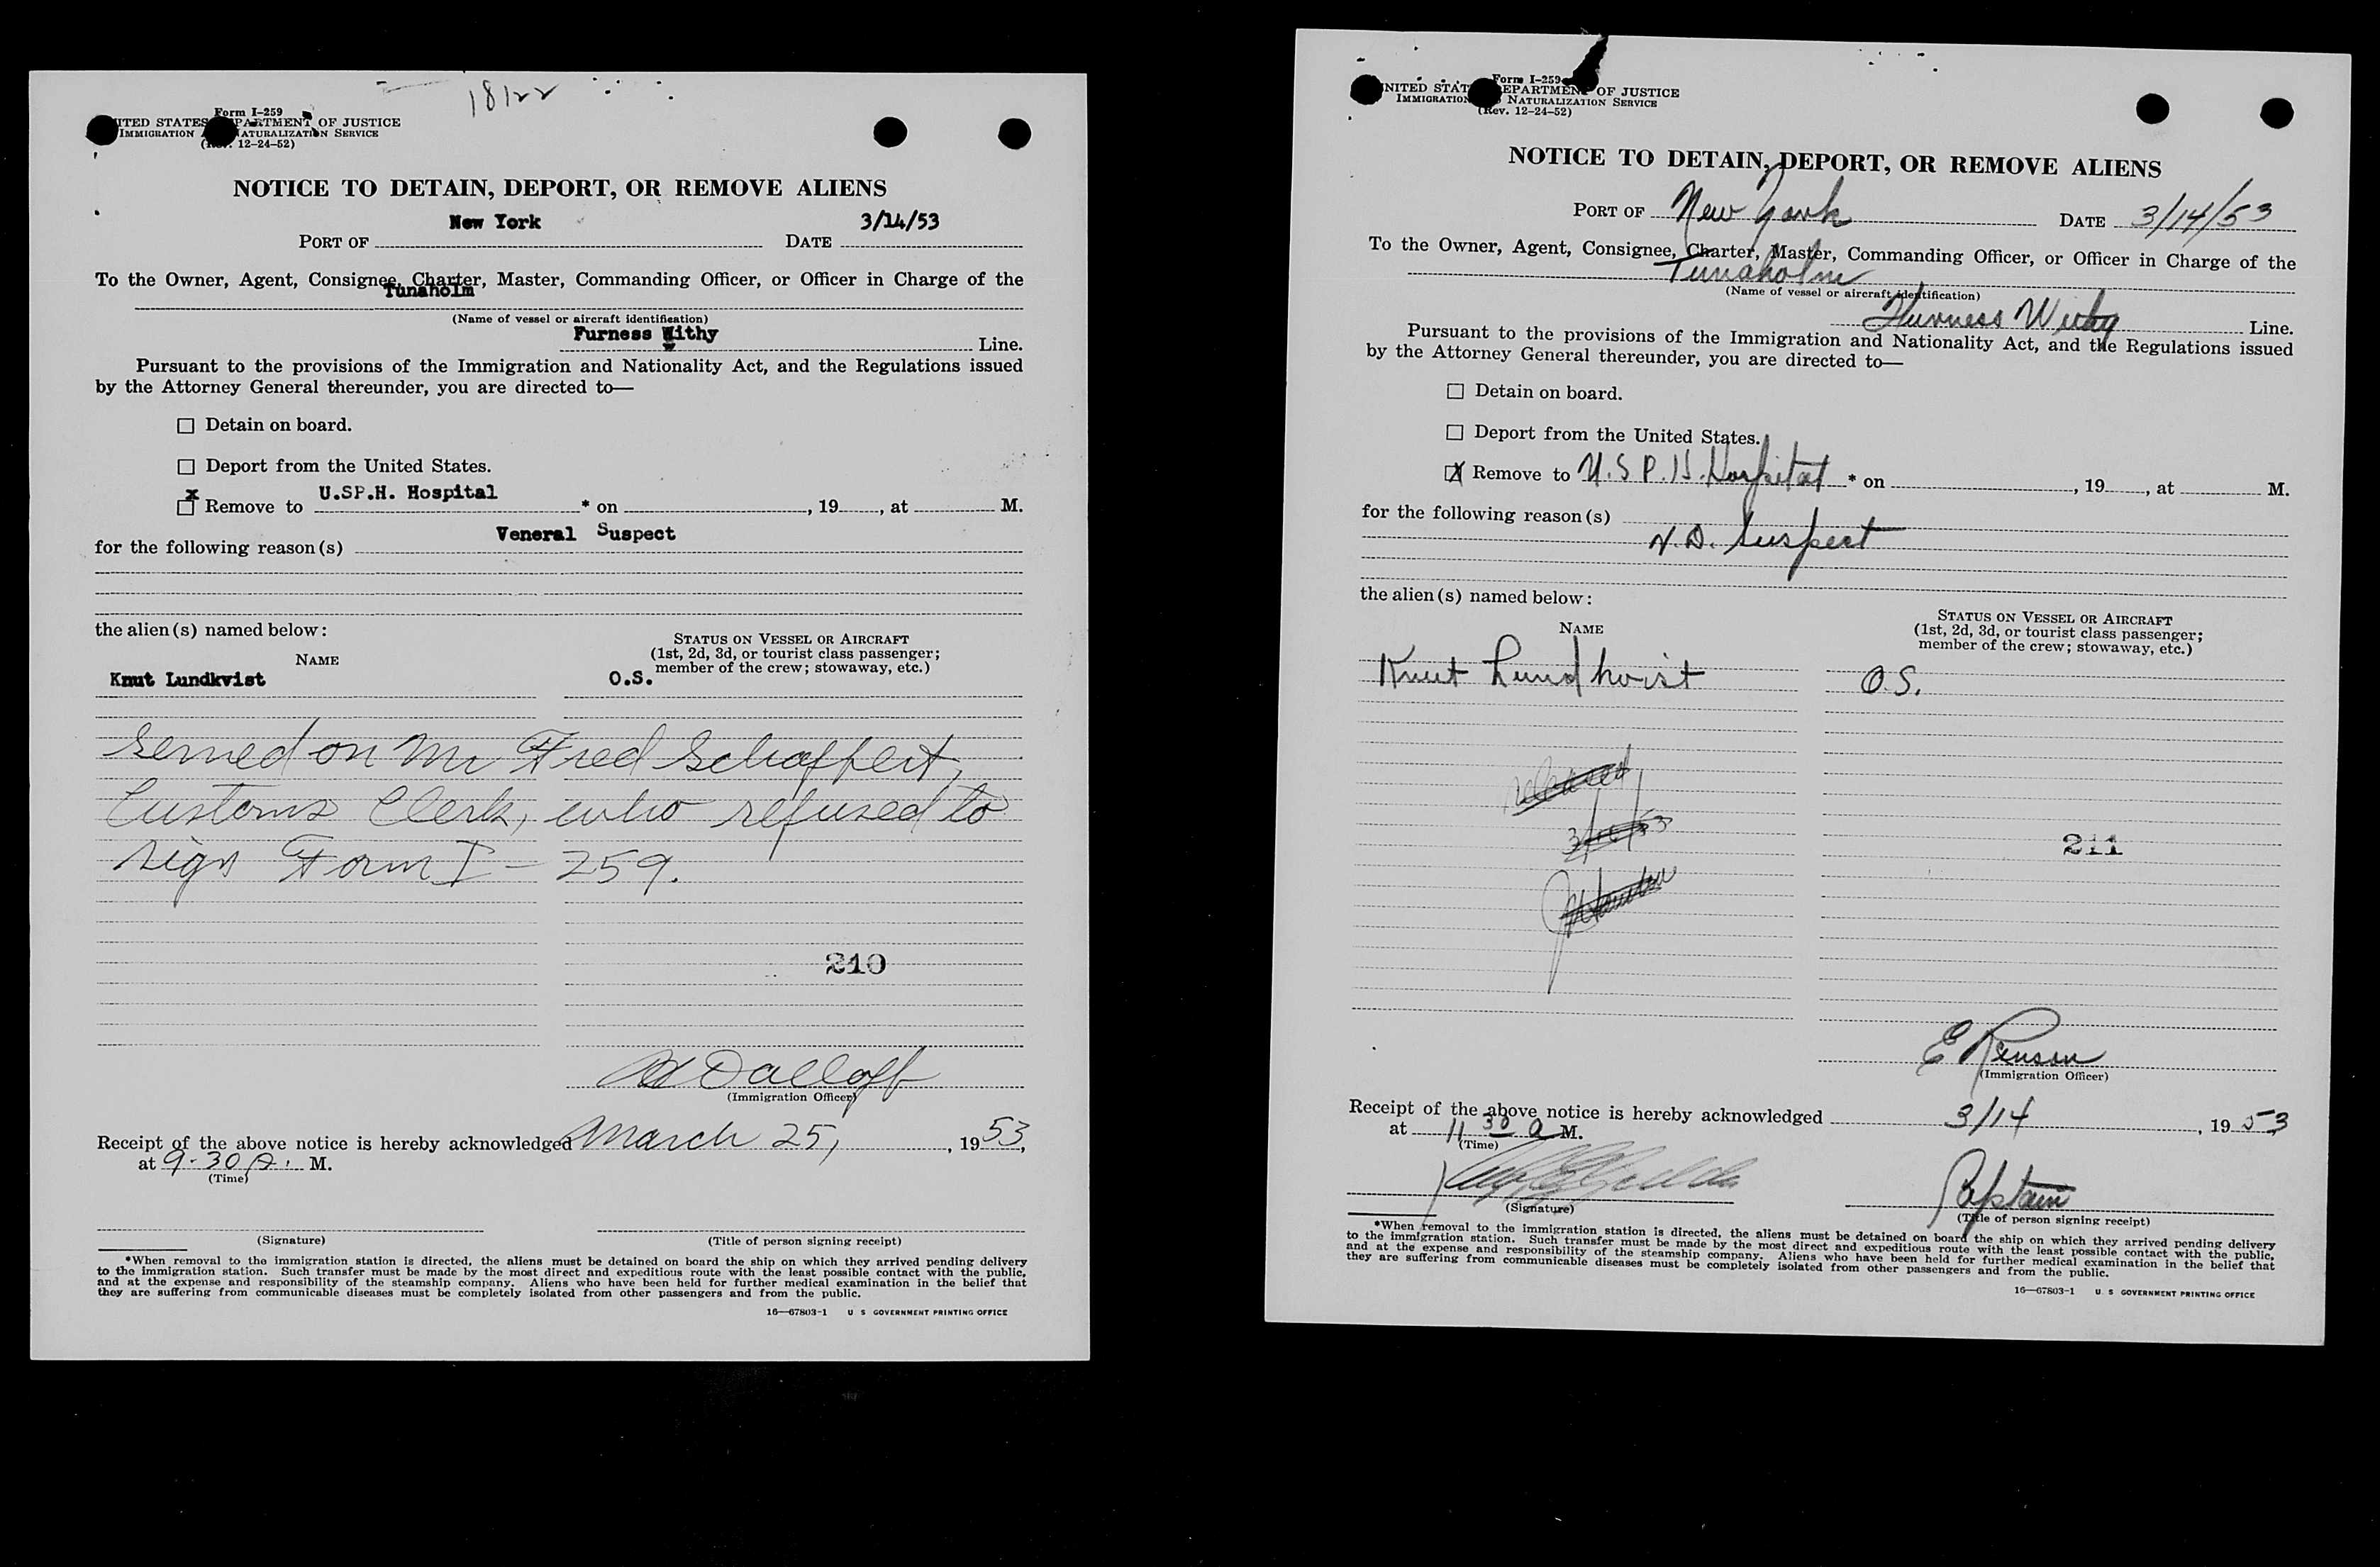 18122
Form I-259
UNITED STATES DEPARTMENT OF JUSTICE
IMMIGRATION NATURALIZATION SERVICE
12-24-52)
NOTICE TO DETAIN, DEPORT, OR REMOVE ALIENS
PORT OF New York DATE 3/14/53
To the Owner, Agent, Consignee, Charter, Master, Commanding Officer, or Officer in Charge of the
Tunaholm
(Name of vessel or aircraft identification)
Furness Withy Line.
Pursuant to the provisions of the Immigration and Nationality Act, and the Regulations issued
by the Attorney General thereunder, you are directed to—
☐ Detain on board.
☐ Deport from the United States.
x Remove to U.SP.H. Hospital * on , 19 , at M.
for the following reason(s) Veneral Suspect
the alien(s) named below:
NAME
STATUS ON VESSEL OR AIRCRAFT
(1st, 2d, 3d, or tourist class passenger;
member of the crew; stowaway, etc.)
Knut Lundkvist O.S.
Served on Mr Fred Schaffert,
Customs Clerk, who refused to
sign Form I-259.
210
Dalloff
(Immigration Officer)
Receipt of the above notice is hereby acknowledged March 25, , 1953,
at 9-30 A. M.
(Time)
(Signature) (Title of person signing receipt)
*When removal to the immigration station is directed, the aliens must be detained on board the ship on which they arrived pending delivery
to the immigration station. Such transfer must be made by the most direct and expeditious route with the least possible contact with the public,
and at the expense and responsibility of the steamship company. Aliens who have been held for further medical examination in the belief that
they are suffering from communicable diseases must be completely isolated from other passengers and from the public.
16—67803-1 U S GOVERNMENT PRINTING OFFICE
Form I-259
UNITED STATES DEPARTMENT OF JUSTICE
IMMIGRATION NATURALIZATION SERVICE
(Rev. 12-24-52)
NOTICE TO DETAIN, DEPORT, OR REMOVE ALIENS
PORT OF New York DATE 3/14/53
To the Owner, Agent, Consignee, Charter, Master, Commanding Officer, or Officer in Charge of the
Tunaholm
(Name of vessel or aircraft identification)
Furness Withy Line.
Pursuant to the provisions of the Immigration and Nationality Act, and the Regulations issued
by the Attorney General thereunder, you are directed to—
☐ Detain on board.
☐ Deport from the United States.
X Remove to U.S.P.H. Hospital * on , 19 , at M.
for the following reason(s)
V.D. Suspect
the alien(s) named below:
NAME
STATUS ON VESSEL OR AIRCRAFT
(1st, 2d, 3d, or tourist class passenger;
member of the crew; stowaway, etc.)
Knut Lundkvist O.S.
released
211
(Immigration Officer)
Receipt of the above notice is hereby acknowledged 3/14 , 1953
at 11 30 a M.
(Time)
Captain
(Signature) (Title of person signing receipt)
*When removal to the immigration station is directed, the aliens must be detained on board the ship on which they arrived pending delivery
to the immigration station. Such transfer must be made by the most direct and expeditious route with the least possible contact with the public,
and at the expense and responsibility of the steamship company. Aliens who have been held for further medical examination in the belief that
they are suffering from communicable diseases must be completely isolated from other passengers and from the public.
16—67803-1 U. S GOVERNMENT PRINTING OFFICE